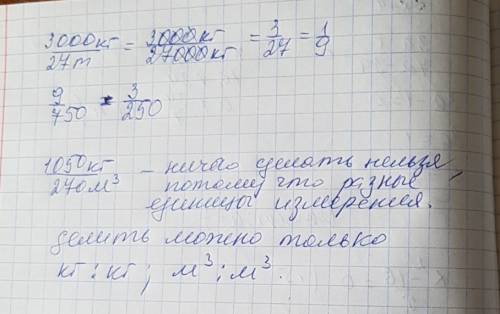 3000кг/27т = 3000кг/27000кг = 3/27 = 1/9
9/750 = 3/250
1050кг/270м³ - ничего сделать нельзя,
потому что разные
единицы измерения.
делить можно только
кг : кг ; м³ : м³.